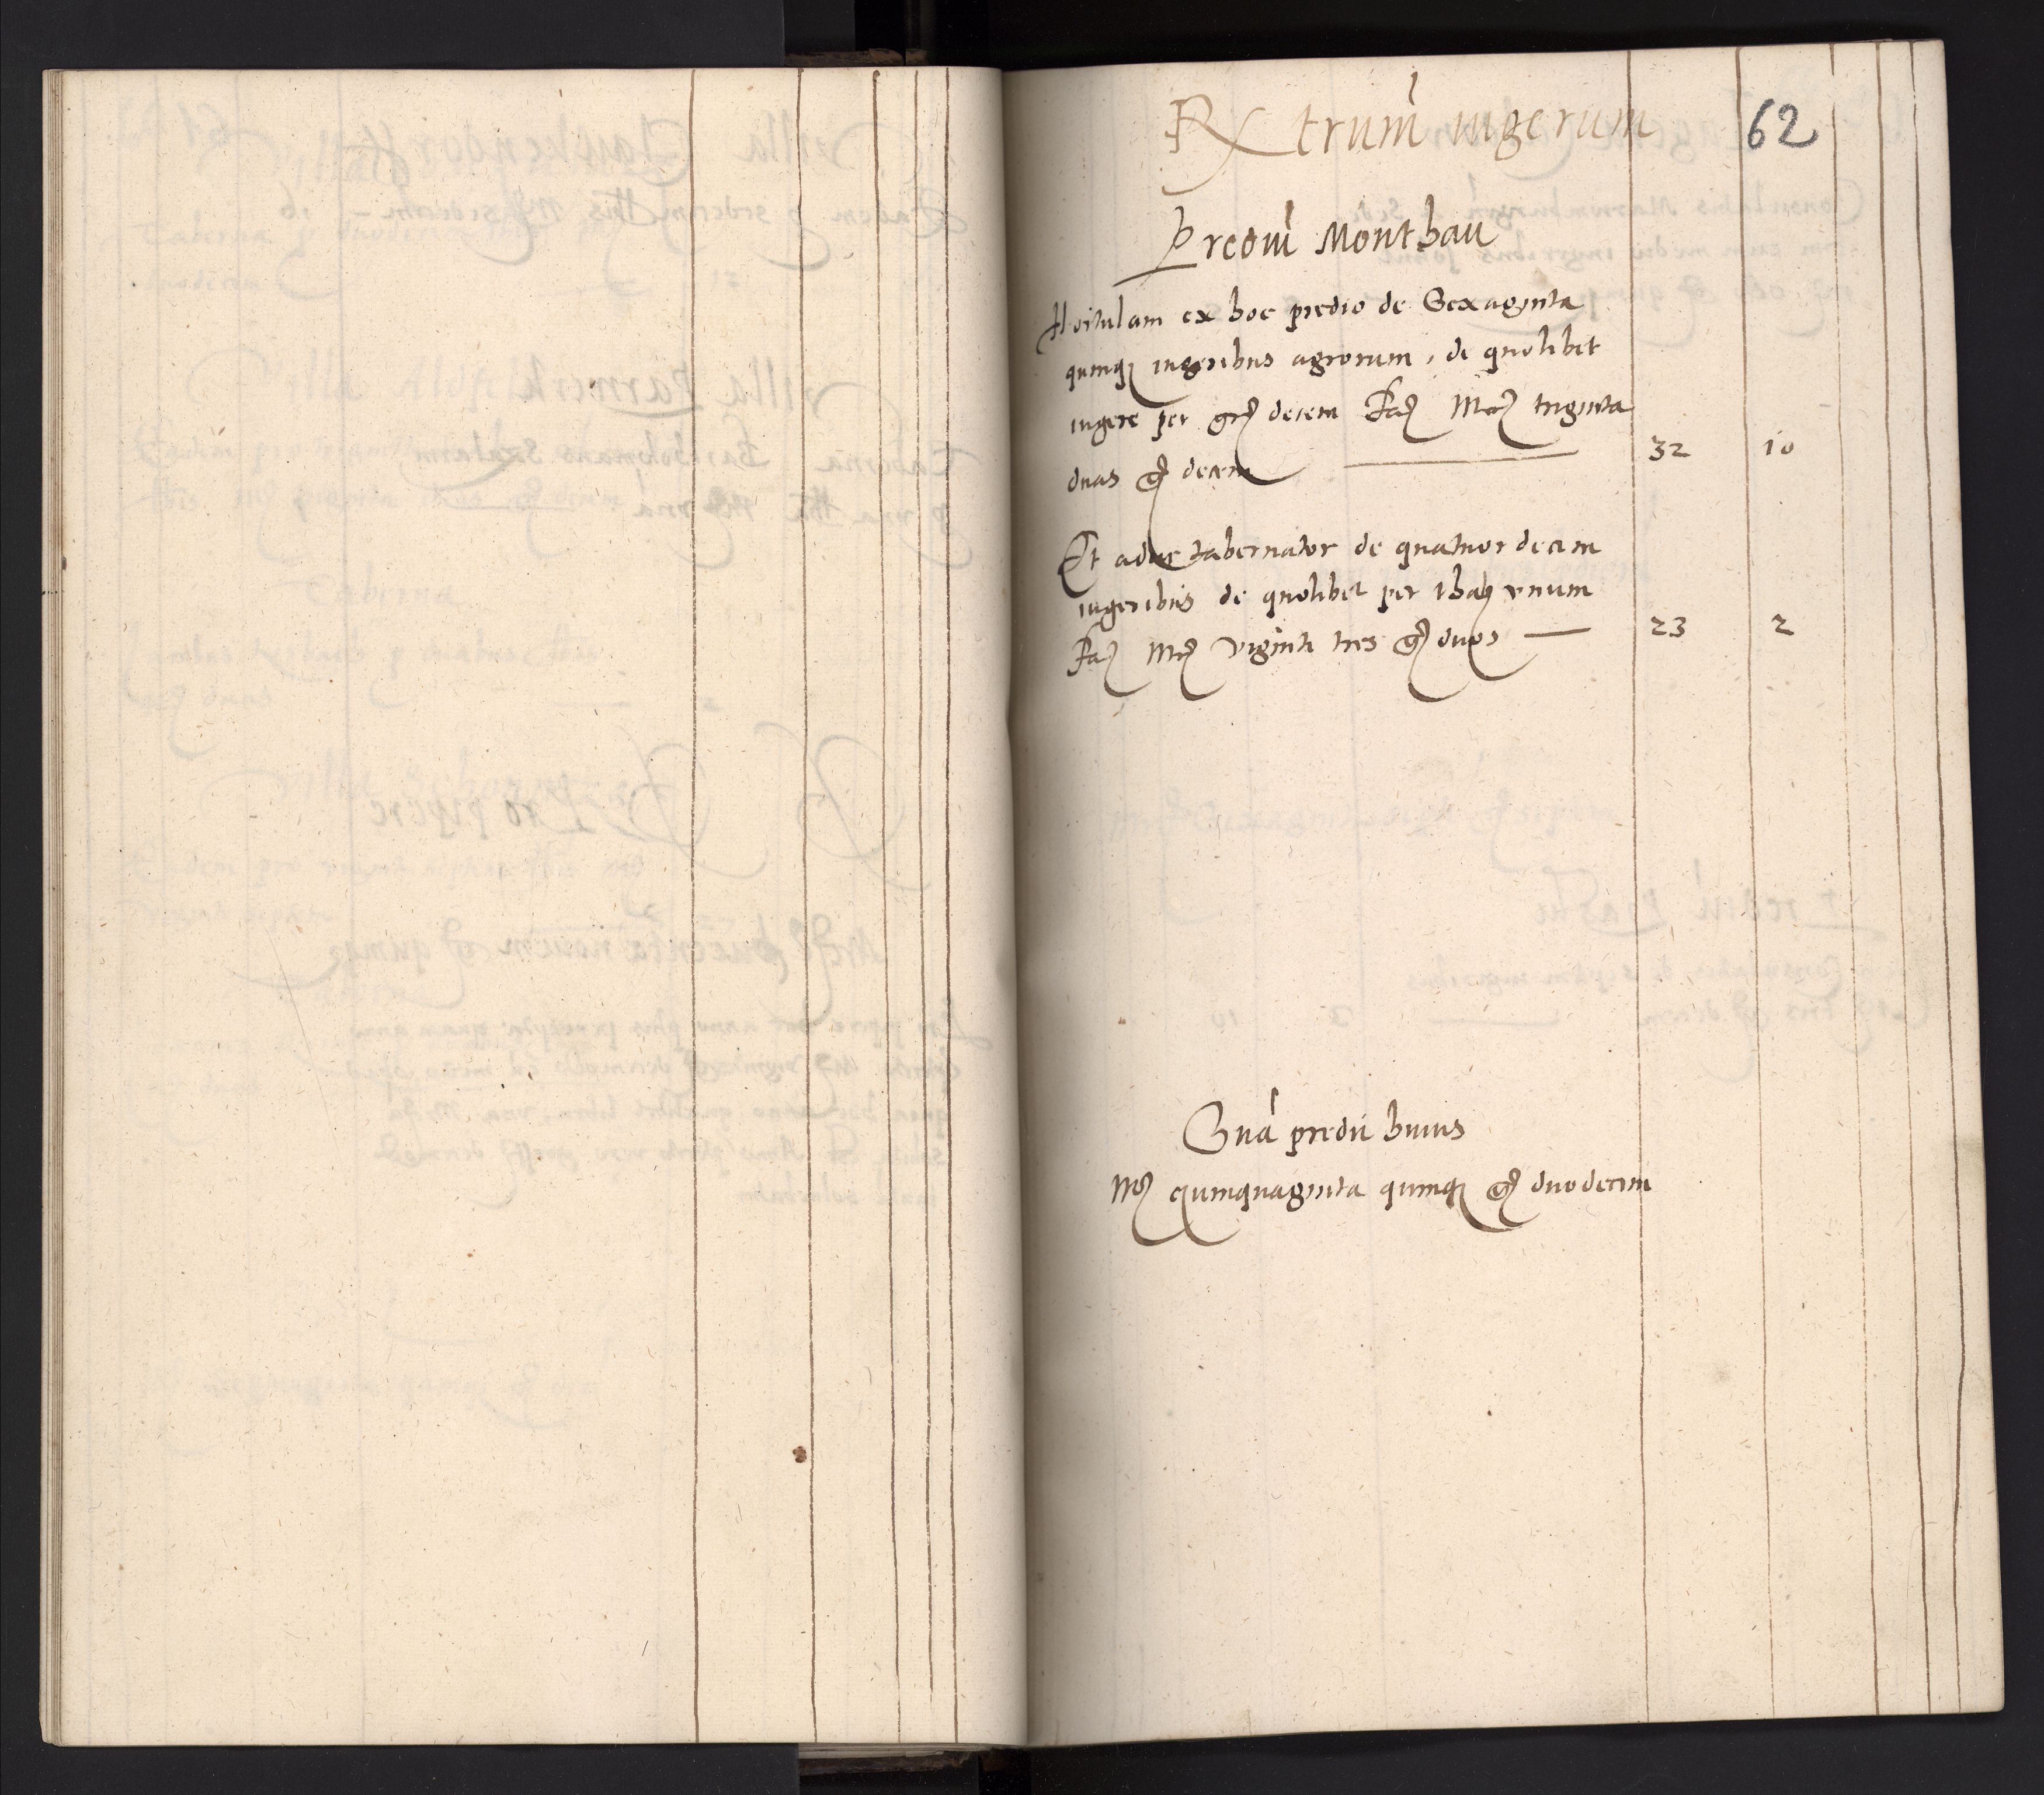 62
Rx trum iugerum
Prediu Monthau
Hortulani ex hoc predio de Sexaginta
quinq iugeribus agrorum, de quolibet
iugere per gr decem Fa Mr triginta
duas g decem — 32 10
Et aduc tabernator de quatuordecim
iugeribus de quolibet per thal vnum
Fa Mr viginti tres g duos — 23 2
Sua predii huius
Mr quinquaginta quinq g duodecim